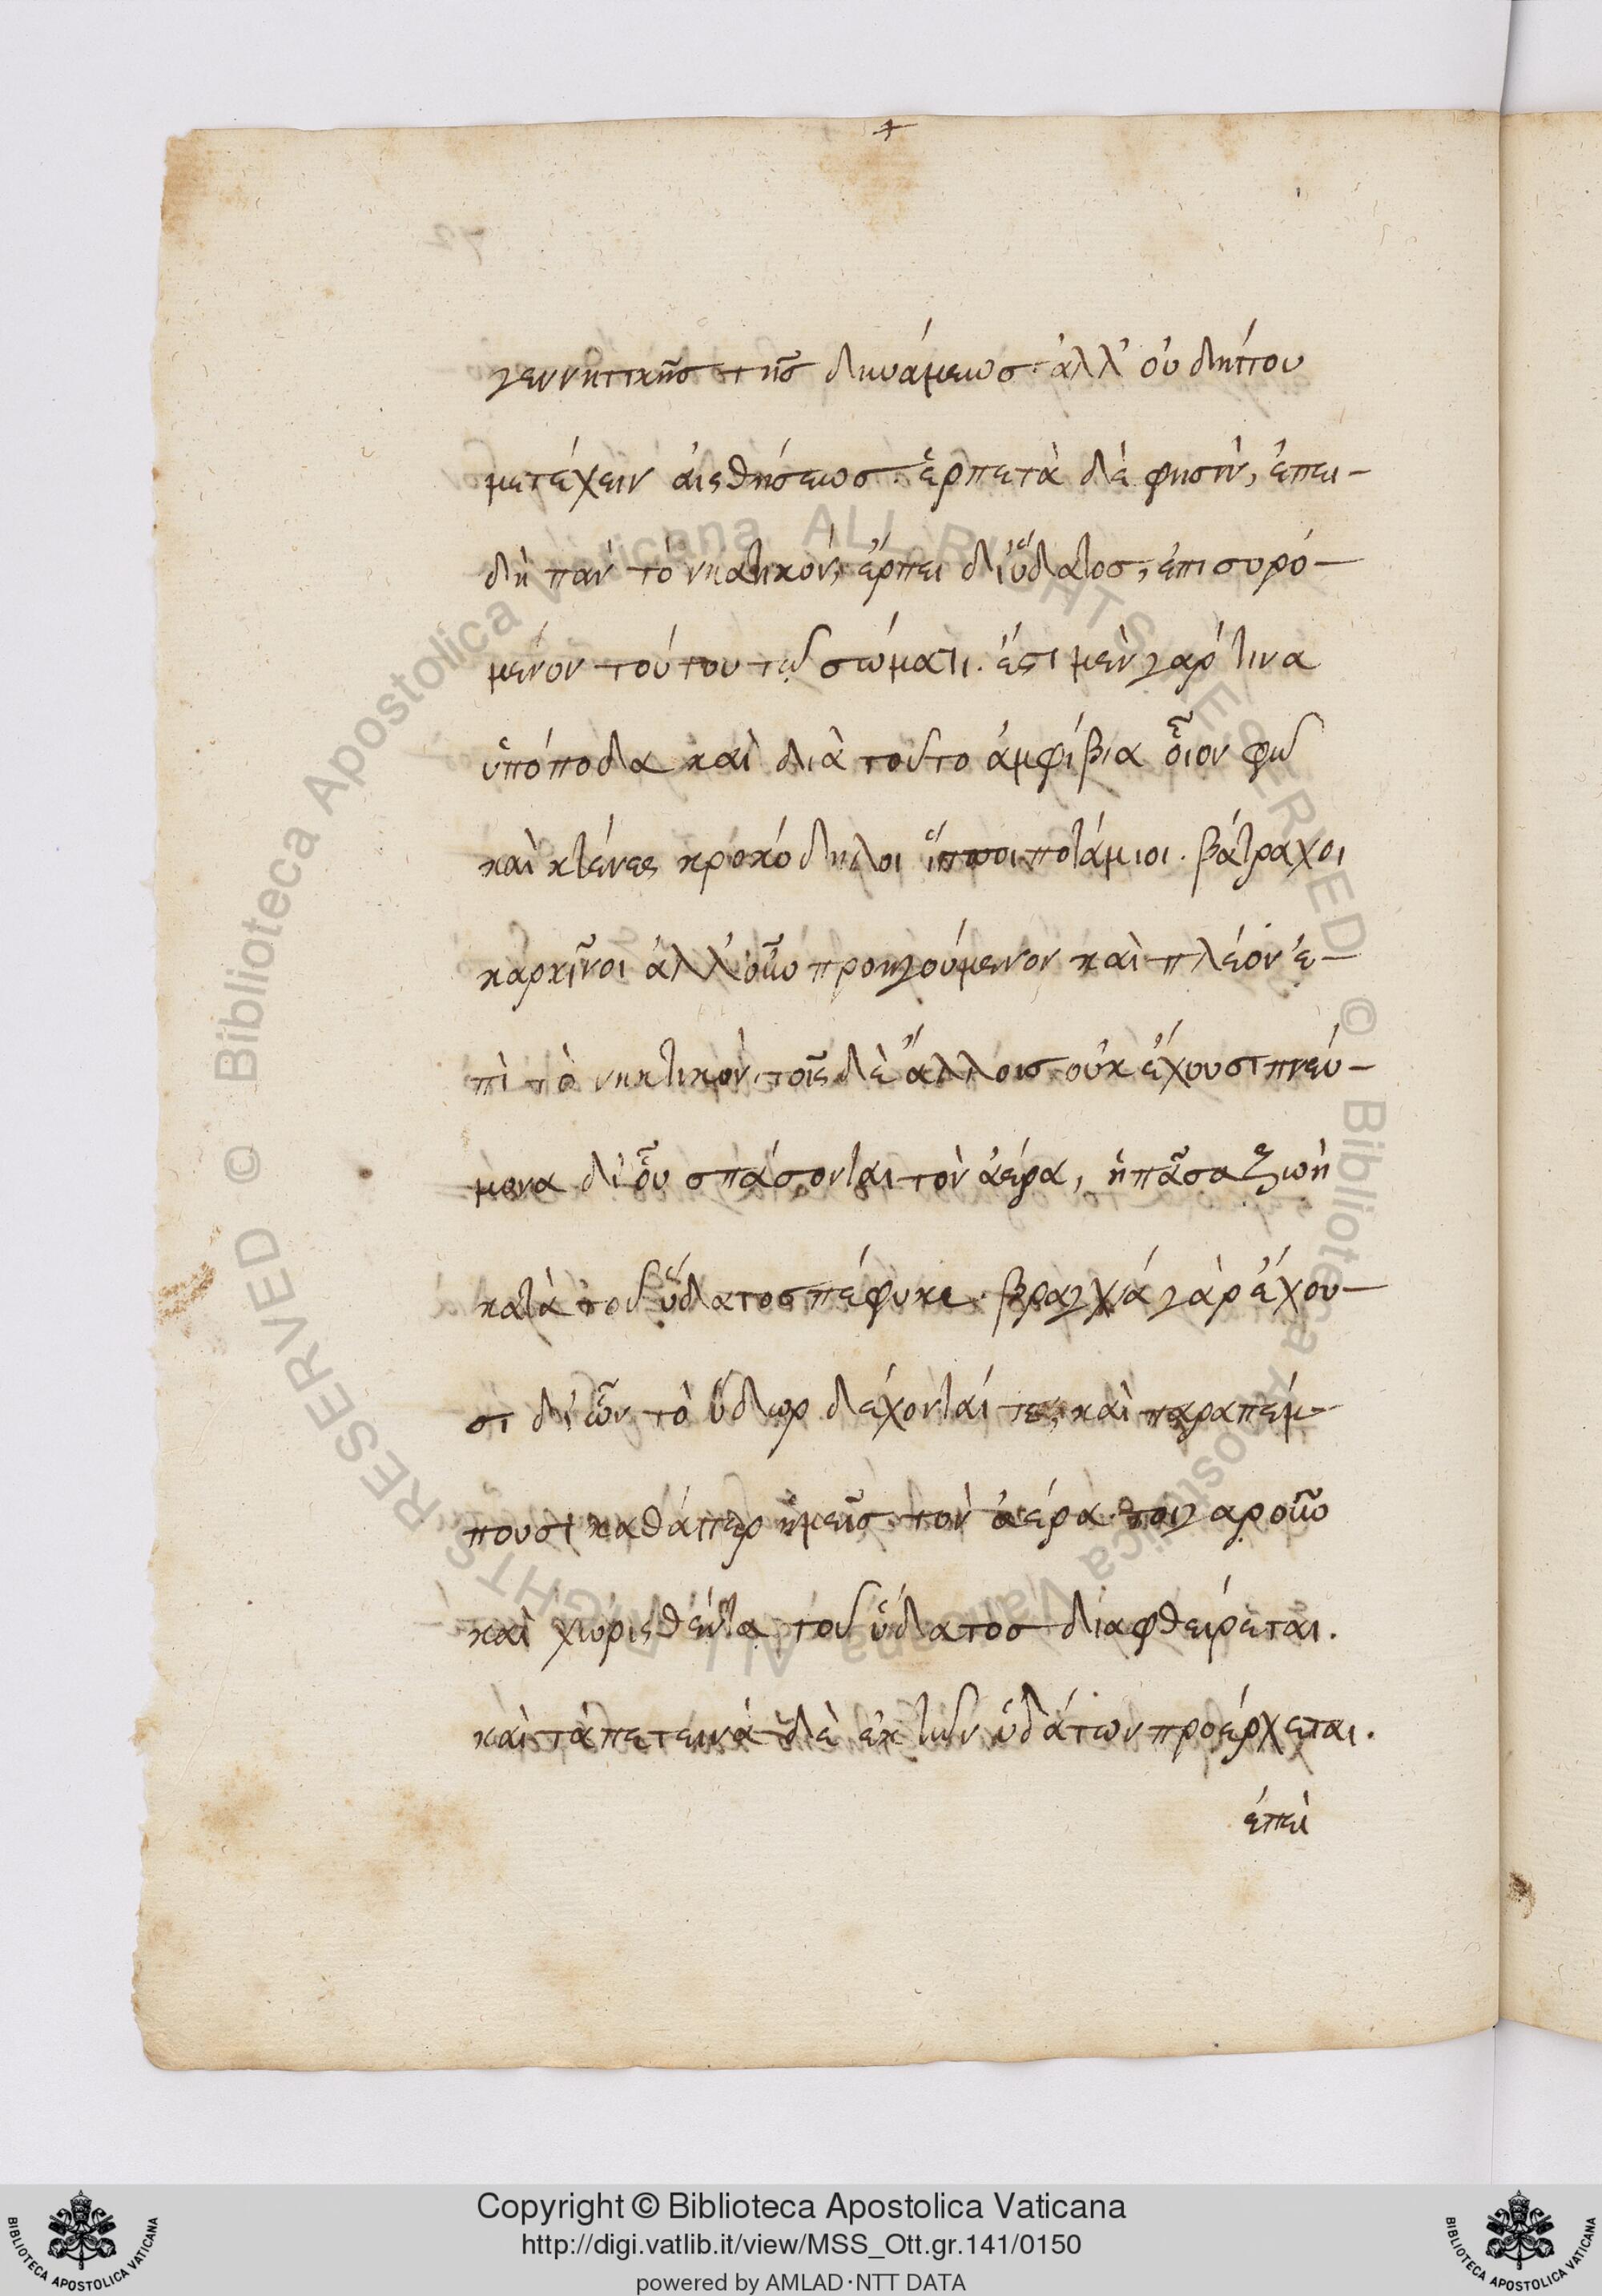 +
γεννητικῆς τῆς δυνάμεως· ἀλλ' οὐ δήπου
μετέχειν αἰσθήσεως· ἑρπετὰ δέ φησιν, ἐπει-
δὴ πᾶν τὸ νηκτικὸν, ἕρπει δι' ὕδατος, ἐπισυρό-
μενον τούτου τῷ σώματι. ἔστι μὲν γάρ τινα
ὑπόποδα καὶ διὰ τοῦτο ἀμφίβια οἷον
καὶ κτένες κροκόδηλοι ἵπποι ποτάμιοι. βάτραχοι
καρκῖνοι ἀλλ' οὖν προηγούμενον καὶ πλέον ἐ-
πὶ τὸ νηκτικόν. τοῖς δὲ ἄλλοις οὐκ ἔχουσι πνεύ-
μονα δι' οὗ σπάσονται τὸν ἀέρα, ἡ πᾶσα ζωὴ
κατὰ τοῦ ὕδατος πέφυκε. βραγχιά γὰρ ἔχου-
σι δι' ὧν τὸ ὕδωρ δέχονταί τε, καὶ παραπέμ-
πουσι καθάπερ ἡμεῖς τὸν ἀέρα. τοιγαροῦν
καὶ χωρισθέντα τοῦ ὕδατος διαφθείρεται.
καὶ τὰ πετεινὰ δὲ ἐκ τῶν ὑδάτων προέρχεται.
ἐπεὶ
Copyright © Biblioteca Apostolica Vaticana
http://digi.vatlib.it/view/MSS_Ott.gr.141/0150
powered by AMLAD·NTT DATA